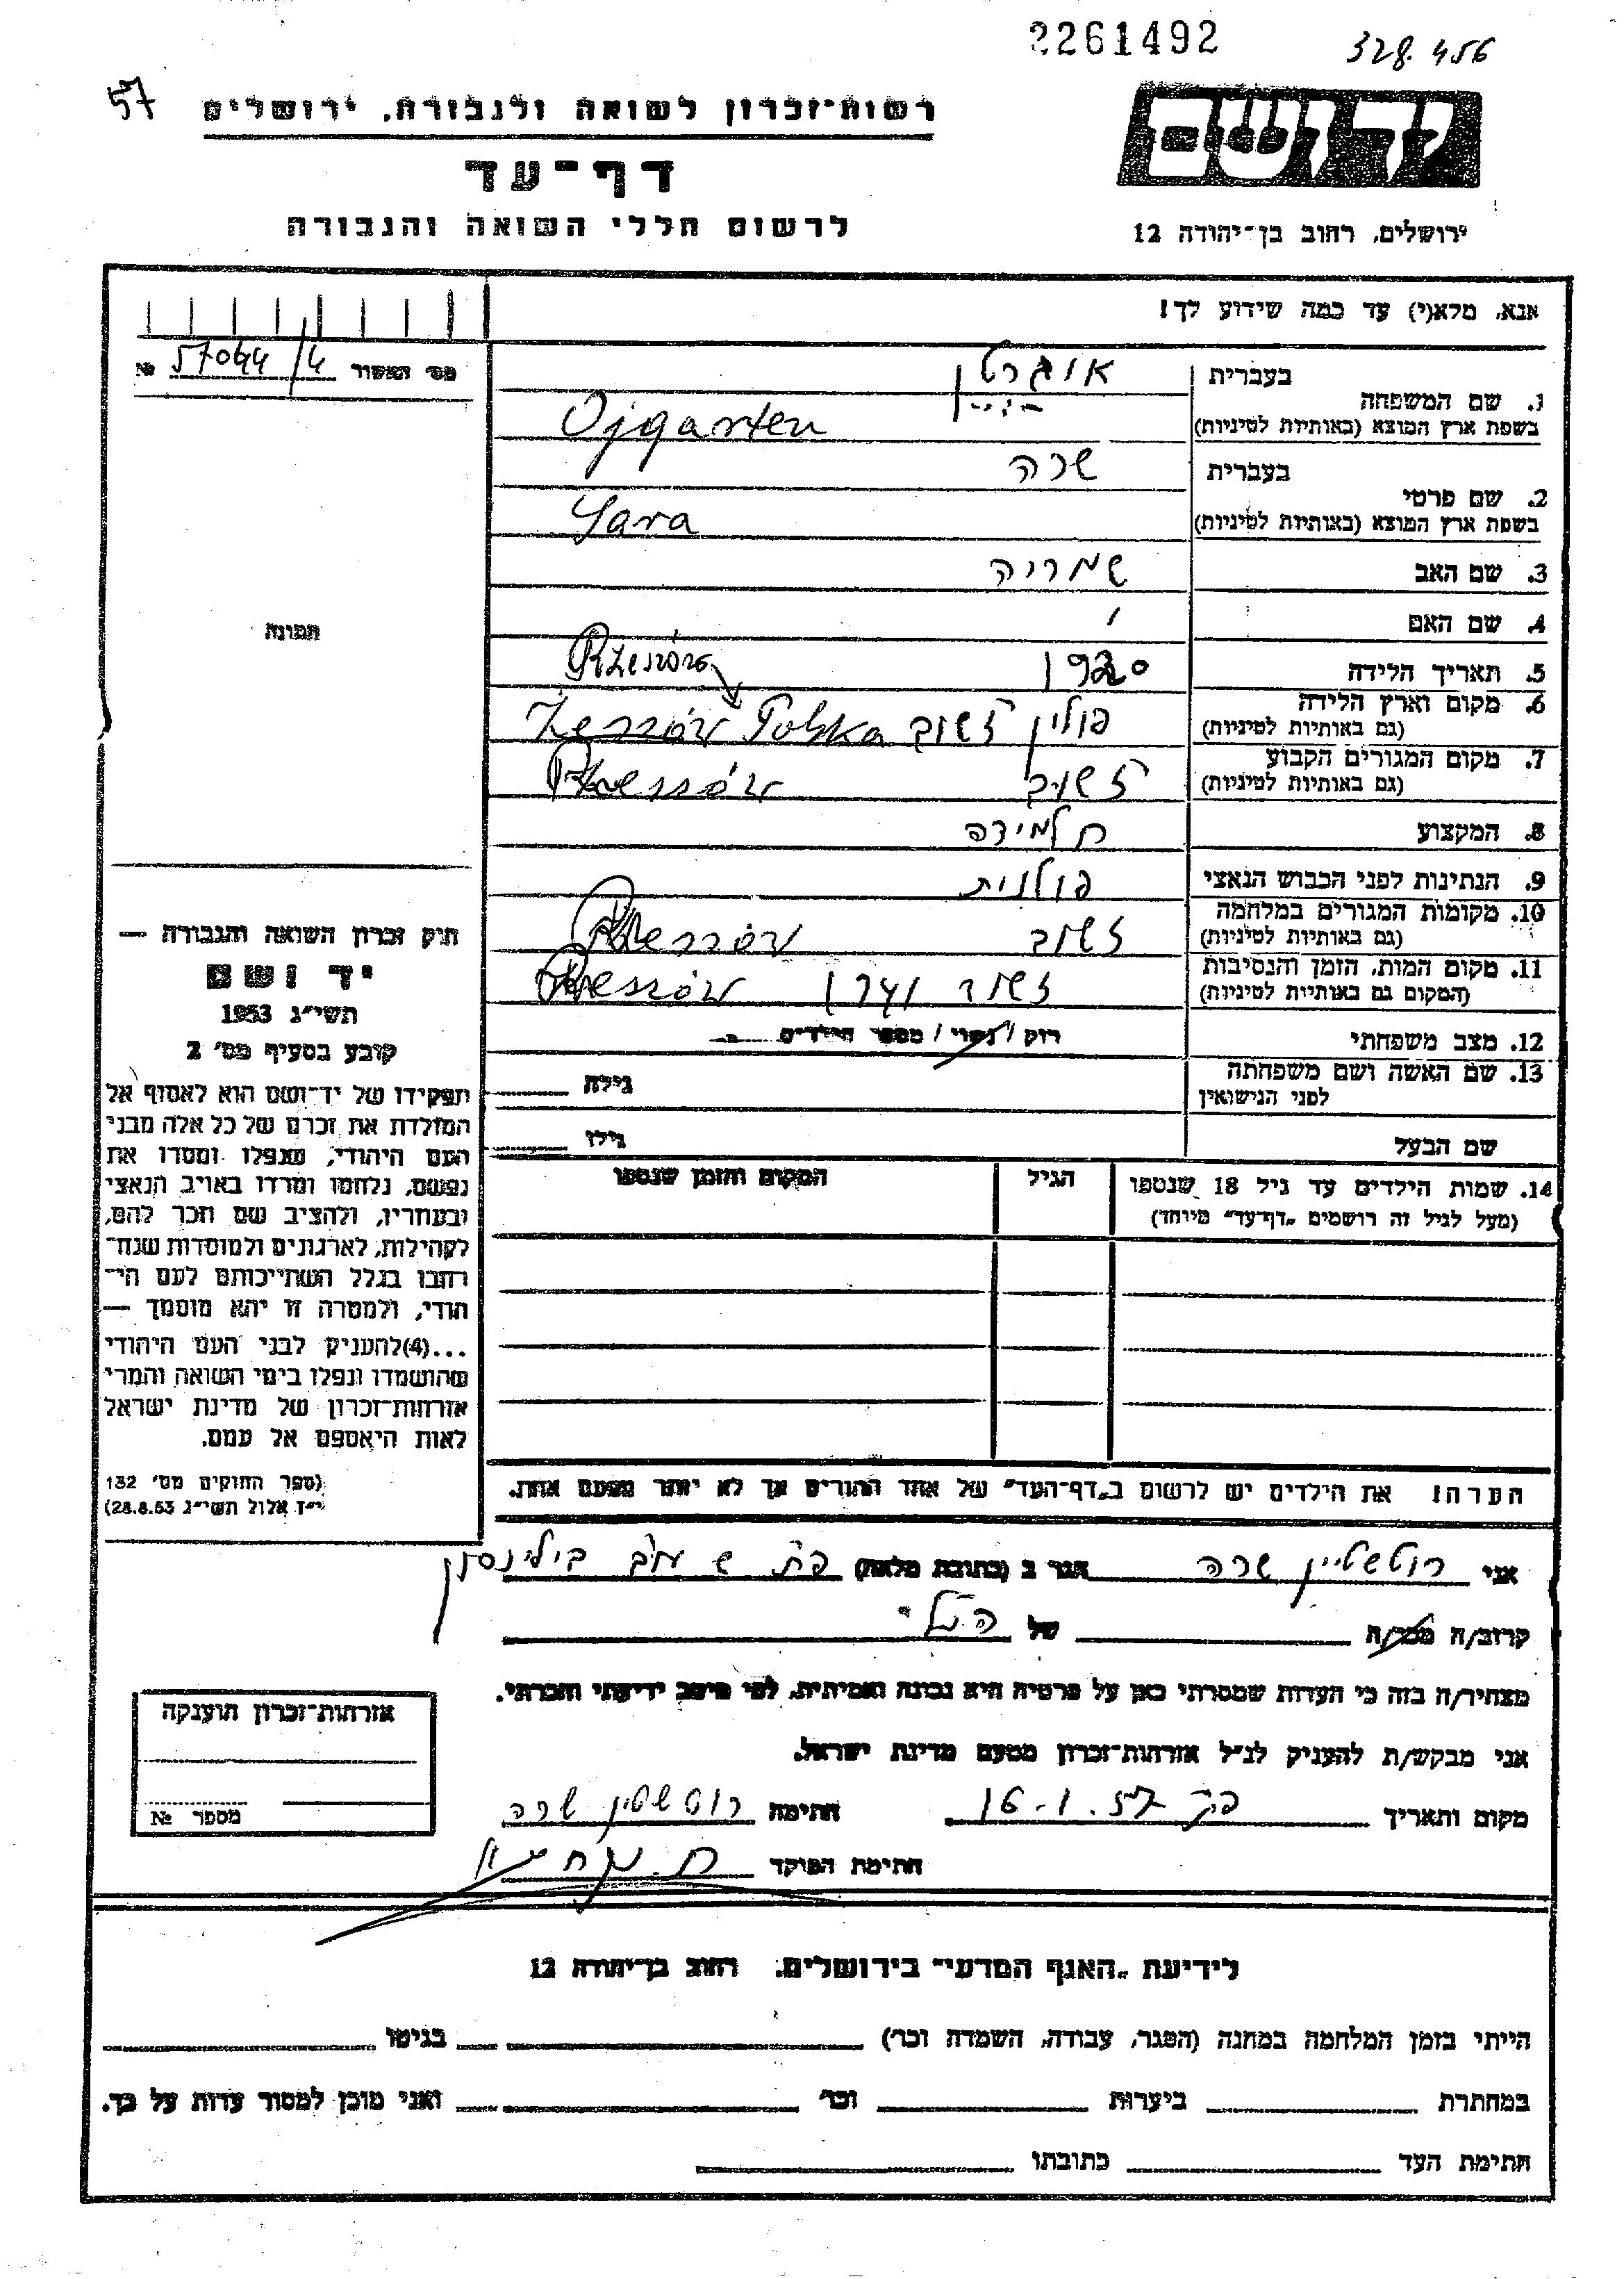 2261492
328.456
57
רשות־זכרון לשואה ולגבורה, ירושלים
יד ושם
דף־עד
לרשום חללי השואה והגבורה
ירושלים, רחוב בן־יהודה 12
אנא, מלא(י) עד כמה שידוע לך!
מס׳ האשור 57044/4 №
בעברית
1. שם המשפחה
בשפת ארץ המוצא (באותיות לטיניות) Ojgarten
בעברית שרה
2. שם פרטי
בשפת ארץ המוצא (באותיות לטיניות) Sara
3. שם האב שמריה
4. שם האם
5. תאריך הלידה
6. מקום וארץ הלידה
(גם באותיות לטיניות) פולין זשוב Żessów Polska
7. מקום המגורים הקבוע
(גם באותיות לטיניות) זשוב
8. המקצוע תלמידה
9. הנתינות לפני הכבוש הנאצי פולנית
10. מקומות המגורים במלחמה
(גם באותיות לטיניות) זשוב
11. מקום המות, הזמן והנסיבות
(המקום גם באותיות לטיניות) זשוב
12. מצב משפחתי רוק/נשוי/מספר הילדים
13. שם האשה ושם משפחתה
לפני הנישואין גילה
שם הבעל גילו
14. שמות הילדים עד גיל 18 שנספו הגיל המקום והזמן שנספו
(מעל לגיל זה רושמים „דף־עד״ מיוחד)
הערה: את הילדים יש לרשום ב„דף־העד״ של אחד ההורים אך לא יותר מפעם אחת.
תמונה
חוק זכרון השואה והגבורה —
יד ושם
תשי״ג 1953
קובע בסעיף מס׳ 2
תפקידו של יד־ושם הוא לאסוף אל
המולדת את זכרם של כל אלה מבני
העם היהודי, שנפלו ומסרו את
נפשם, נלחמו ומרדו באויב הנאצי
ובעוזריו, ולהציב שם וזכר להם,
לקהילות, לארגונים ולמוסדות שנח־
רבו בגלל השתייכותם לעם הי־
הודי, ולמטרה זו יהא מוסמך —
...(4)להעניק לבני העם היהודי
שהושמדו ונפלו בימי השואה והמרי
אזרחות־זכרון של מדינת ישראל
לאות היאספם אל עמם.
(ספר החוקים מס׳ 132
י״ז אלול תשי״ג 28.8.53)
אני רוטשטיין שרה הגר ב (כתובת מלאה) בילינסון
קרוב/ה מכר/ה של הנ״ל
מצהיר/ה בזה כי העדות שמסרתי כאן על פרטיה היא נכונה ואמיתית, לפי מיטב ידיעתי והכרתי.
אני מבקש/ת להעניק לנ״ל אזרחות־זכרון מטעם מדינת ישראל.
מקום ותאריך 16.1.57 חתימה רוטשטין שרה
חתימת הפוקד
אזרחות־זכרון הוענקה
מספר №
לידיעת „האגף המדעי״ בירושלים, רחוב בן־יהודה 12
הייתי בזמן המלחמה במחנה (הסגר, עבודה, השמדה וכר׳) בגיטו
במחתרת ביערות וכר׳ ואני מוכן למסור עדות על כך.
חתימת העד כתובתו